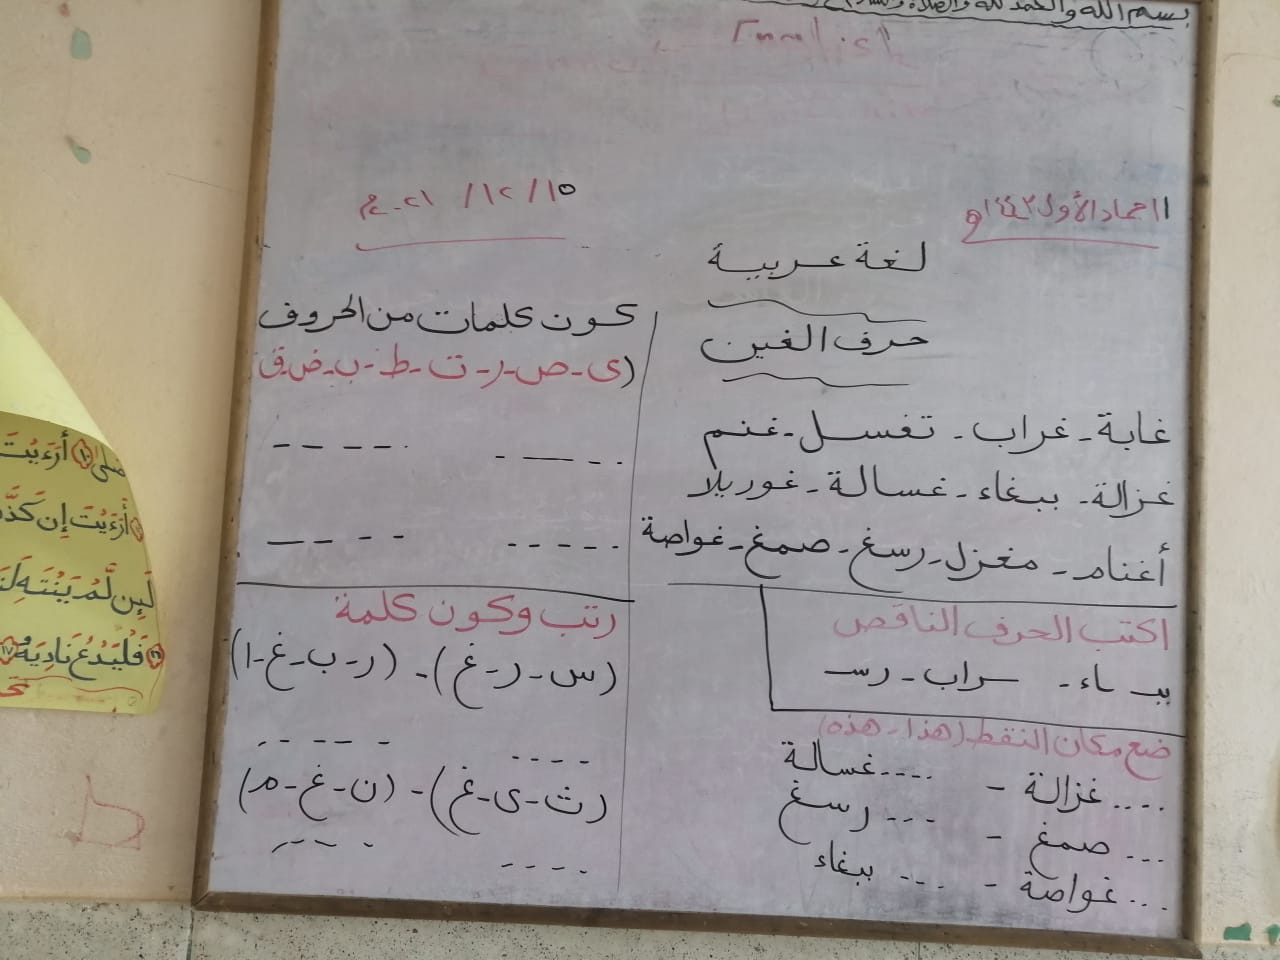 بسم الله والحمد لله والصلاة والسلام
English
١١ جماد الأول ١٤٤٣ه
١٥ / ١٢ / ٢٠٢١م
لغة عربية
حرف الغين
غابة - غراب - تغسل - غنم
غزالة - ببغاء - غسالة - غوريلا
أغنام - مغزل - رسغ - صمغ - غواصة
اكتب الحرف الناقص
ببـ ـاء - ـراب - رسـ
ضع مكان النقط (هذا - هذه)
.... غزالة - .... غسالة
... صمغ - ... رسغ
... غواصة - ... ببغاء
كون كلمات من الحروف
(ى - ص - ر - ت - ط - ب - ض - ق
رتب وكون كلمة
(س - ر - غ) - (ر - ب - غ - ا)
(ث - ى - غ) - (ن - غ - م)
أرءيت
أرءيت إن كذ
لئن لم ينته لن
١٦ فليدع ناديه ١٧
ط